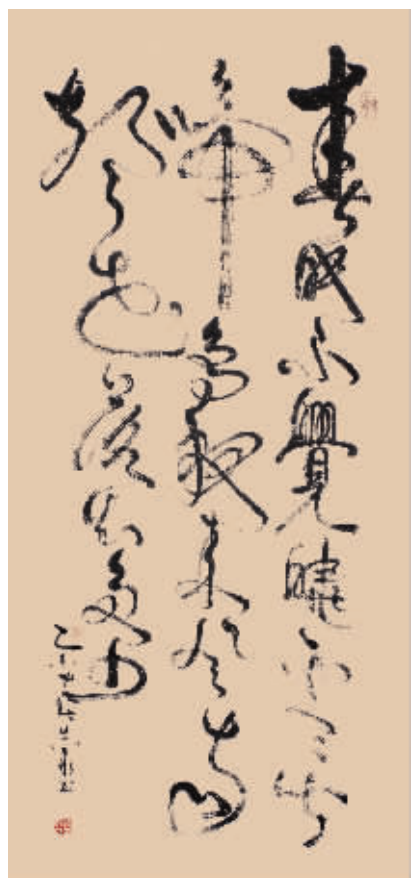 春眠不覺曉處々聞
啼鳥夜來風雨
聲花落知多少